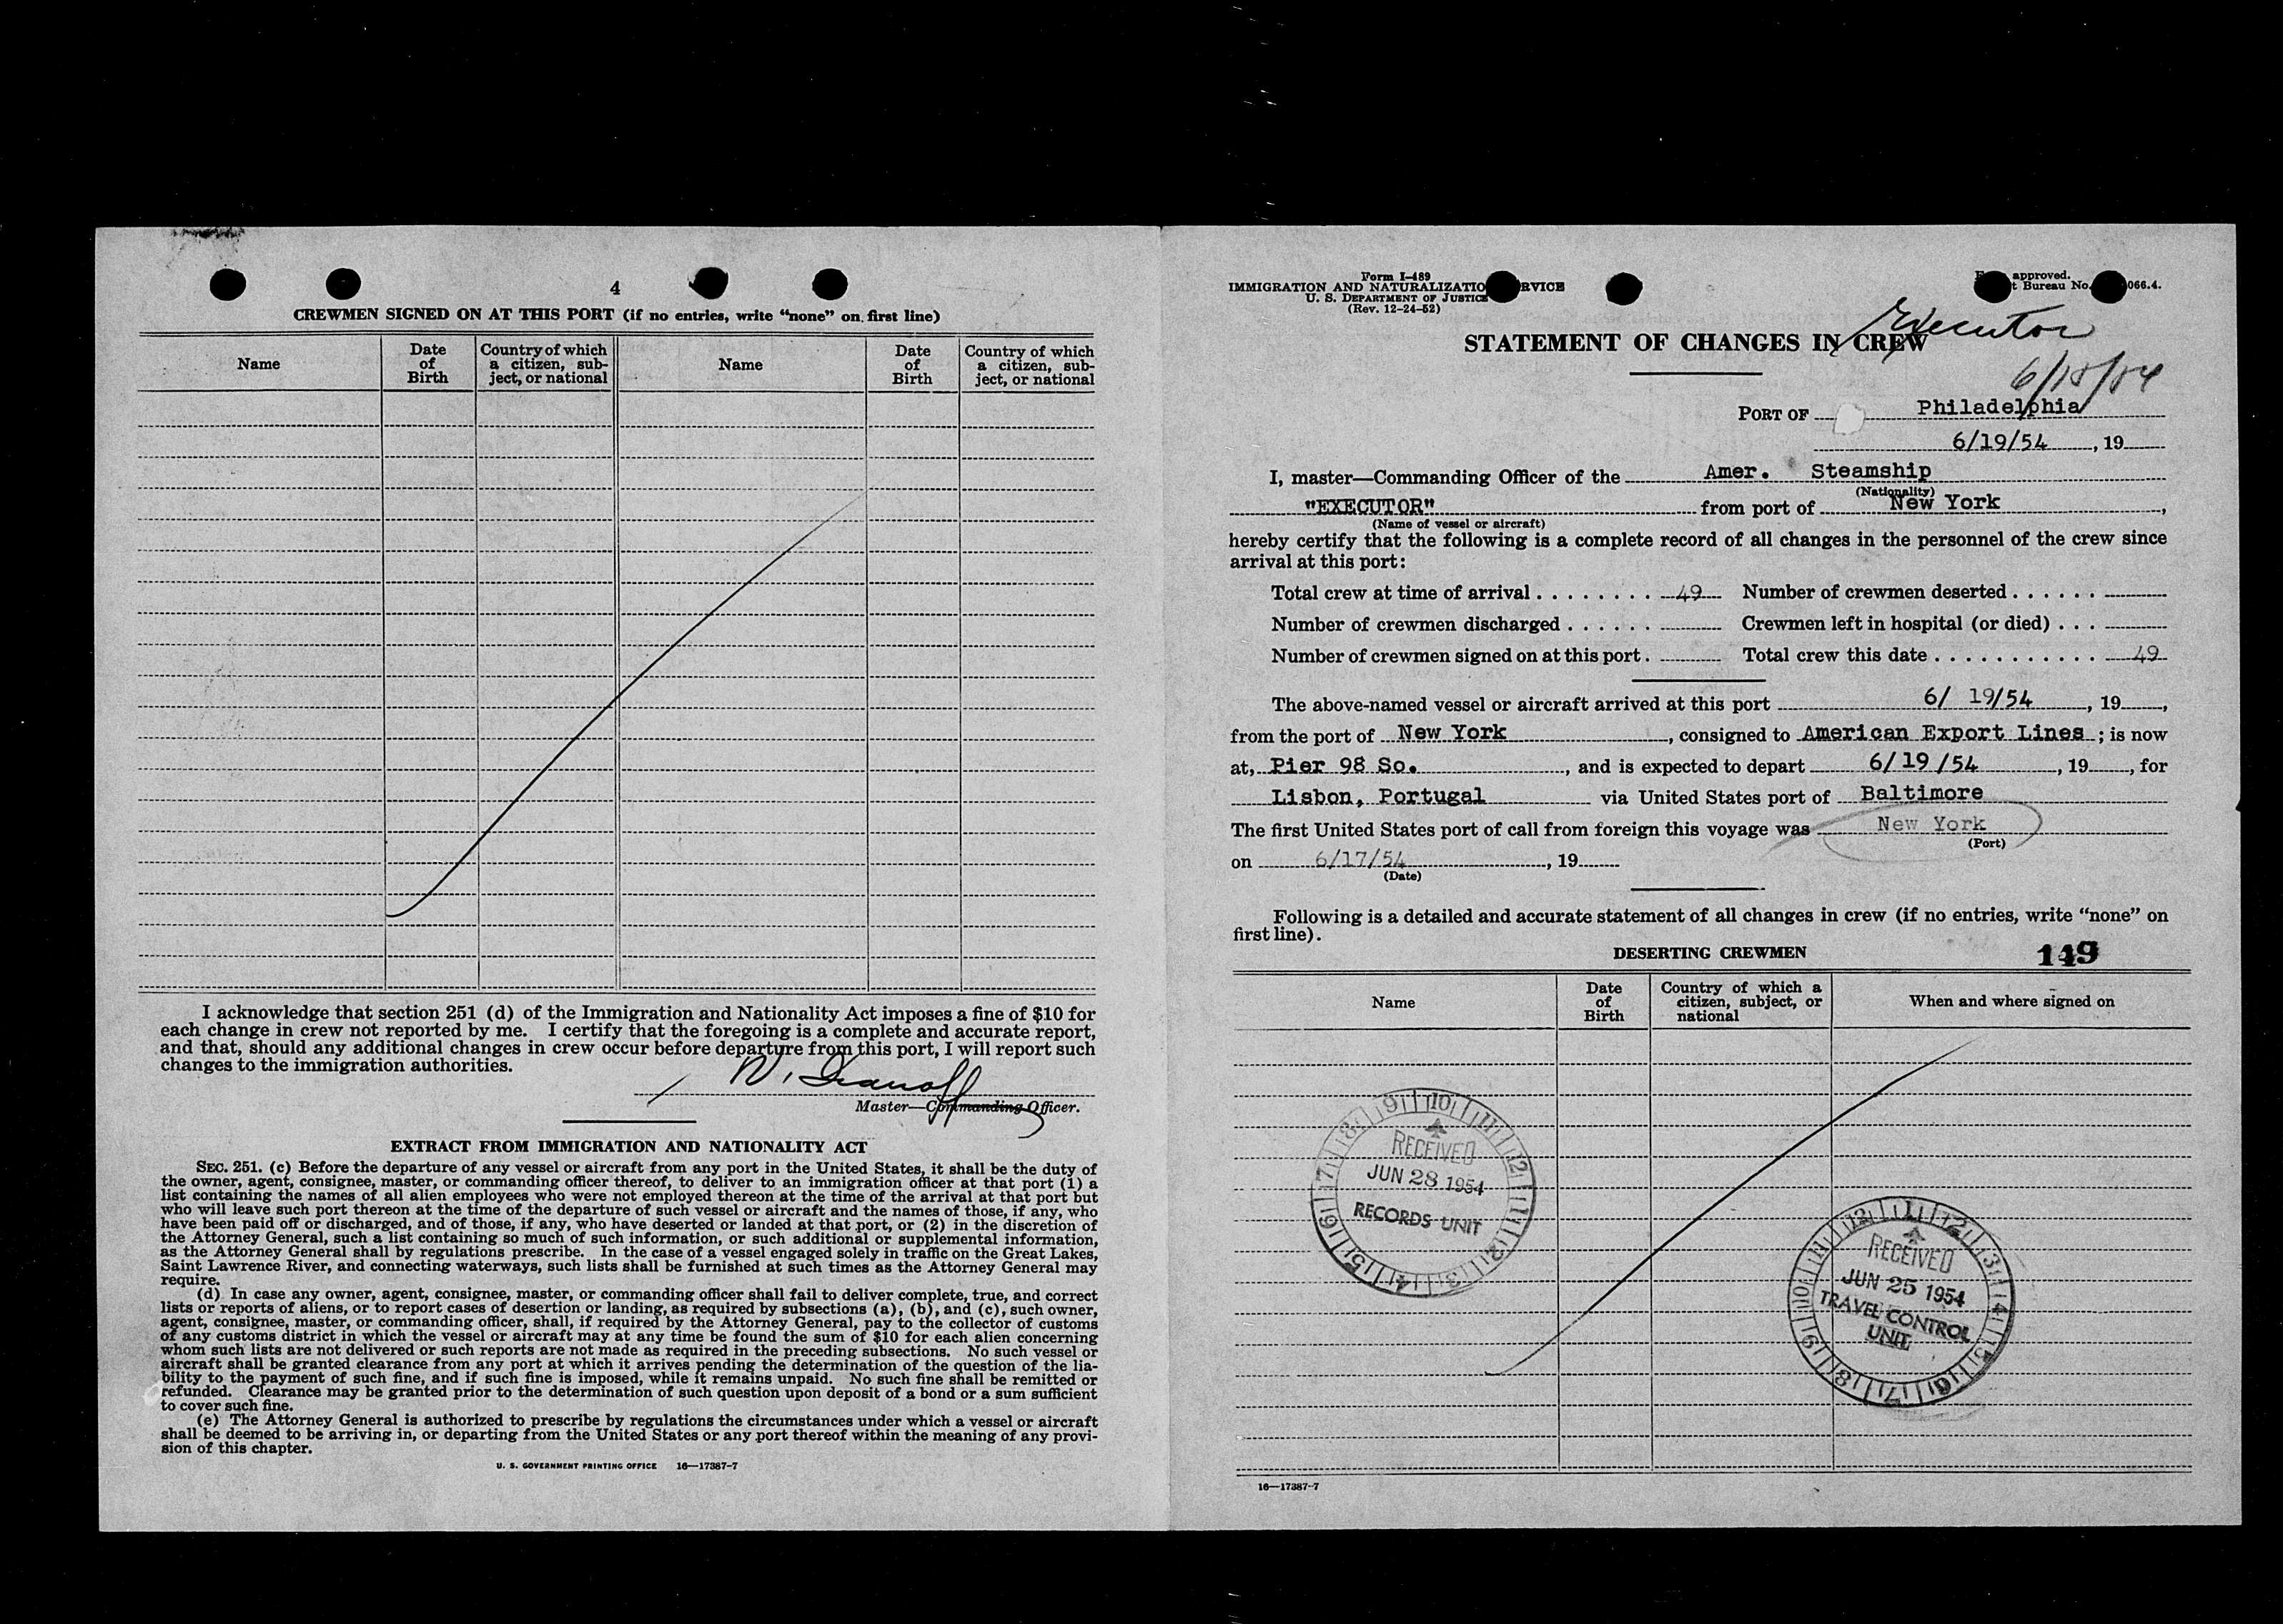 4
CREWMEN SIGNED ON AT THIS PORT (if no entries, write “none” on first line)
Name
Date of Birth
Country of which a citizen, subject, or national
Name
Date of Birth
Country of which a citizen, subject, or national
I acknowledge that section 251 (d) of the Immigration and Nationality Act imposes a fine of $10 for
each change in crew not reported by me. I certify that the foregoing is a complete and accurate report,
and that, should any additional changes in crew occur before departure from this port, I will report such
changes to the immigration authorities.
Master—Commanding Officer.
EXTRACT FROM IMMIGRATION AND NATIONALITY ACT
SEC. 251. (c) Before the departure of any vessel or aircraft from any port in the United States, it shall be the duty of
the owner, agent, consignee, master, or commanding officer thereof, to deliver to an immigration officer at that port (1) a
list containing the names of all alien employees who were not employed thereon at the time of the arrival at that port but
who will leave such port thereon at the time of the departure of such vessel or aircraft and the names of those, if any, who
have been paid off or discharged, and of those, if any, who have deserted or landed at that port, or (2) in the discretion of
the Attorney General, such a list containing so much of such information, or such additional or supplemental information,
as the Attorney General shall by regulations prescribe. In the case of a vessel engaged solely in traffic on the Great Lakes,
Saint Lawrence River, and connecting waterways, such lists shall be furnished at such times as the Attorney General may
require.
(d) In case any owner, agent, consignee, master, or commanding officer shall fail to deliver complete, true, and correct
lists or reports of aliens, or to report cases of desertion or landing, as required by subsections (a), (b), and (c), such owner,
agent, consignee, master, or commanding officer, shall, if required by the Attorney General, pay to the collector of customs
of any customs district in which the vessel or aircraft may at any time be found the sum of $10 for each alien concerning
whom such lists are not delivered or such reports are not made as required in the preceding subsections. No such vessel or
aircraft shall be granted clearance from any port at which it arrives pending the determination of the question of the lia-
bility to the payment of such fine, and if such fine is imposed, while it remains unpaid. No such fine shall be remitted or
refunded. Clearance may be granted prior to the determination of such question upon deposit of a bond or a sum sufficient
to cover such fine.
(e) The Attorney General is authorized to prescribe by regulations the circumstances under which a vessel or aircraft
shall be deemed to be arriving in, or departing from the United States or any port thereof within the meaning of any provi-
sion of this chapter.
U. S. GOVERNMENT PRINTING OFFICE 16—17387-7
Form I-489
IMMIGRATION AND NATURALIZATIO RVICE
U. S. DEPARTMENT OF JUSTICE
(Rev. 12-24-52)
approved.
t Bureau No. 066.4.
Executor
STATEMENT OF CHANGES IN CREW
PORT OF Philadelphia
6/19/54, 19
I, master—Commanding Officer of the Amer. Steamship
(Nationality)
"EXECUTOR" from port of New York,
(Name of vessel or aircraft)
hereby certify that the following is a complete record of all changes in the personnel of the crew since
arrival at this port:
Total crew at time of arrival 49 Number of crewmen deserted
Number of crewmen discharged Crewmen left in hospital (or died)
Number of crewmen signed on at this port Total crew this date 49
The above-named vessel or aircraft arrived at this port 6/ 19/54, 19,
from the port of New York, consigned to American Export Lines; is now
at, Pier 98 So., and is expected to depart 6/19/54, 19, for
Lisbon, Portugal via United States port of Baltimore
The first United States port of call from foreign this voyage was New York
(Port)
on 6/17/54, 19
(Date)
Following is a detailed and accurate statement of all changes in crew (if no entries, write “none” on
first line).
DESERTING CREWMEN
149
Name
Date of Birth
Country of which a citizen, subject, or national
When and where signed on
RECEIVED
JUN 28 1954
RECORDS UNIT
9 10 11 12 1 2 3 4 5 6 7 8
RECEIVED
JUN 25 1954
TRAVEL CONTROL
UNIT
12 1 2 3 4 5 6 7 8 9 10 11
16—17387-7